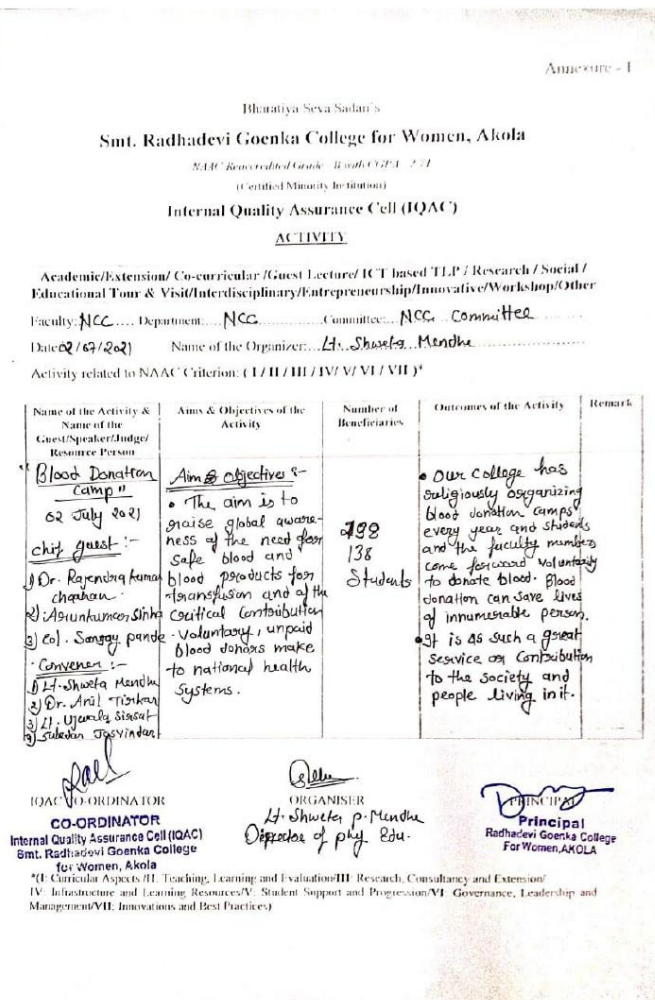 Annexure - I
Bharatiya Seva Sadan's
Smt. Radhadevi Goenka College for Women, Akola
NAAC Reaccredited Grade - B with CGPA - 2.71
(Certified Minority Institution)
Internal Quality Assurance Cell (IQAC)
ACTIVITY
Academic/Extension/ Co-curricular /Guest Lecture/ ICT based TLP / Research / Social /
Educational Tour & Visit/Interdisciplinary/Entrepreneurship/Innovative/Workshop/Other
Faculty: NCC .... Department:.... NCC ............Committee:... NCC Committee
Date 02/07/2021 Name of the Organizer:... Lt. Shweta Mendhe
Activity related to NAAC Criterion: ( I / II / III / IV/ V/ VI / VII )*
Name of the Activity &
Name of the
Guest/Speaker/Judge/
Resource Person
Aims & Objectives of the
Activity
Number of
Beneficiaries
Outcomes of the Activity
Remark
"Blood Donation
Camp"
02 July 2021
chif guest :-
1) Dr. Rajendra kumar
chauhan.
2) Arunkumar Sinha
3) Col. Sanjay pande
Convener :-
1) Lt. Shweta Mendhe
2) Dr. Anil Tirkar
3) Lt. Ujwala Sirsat
4) Subedar Jasvindar
Aim & objectives :-
• The aim is to
graise global aware-
ness of the need for
safe blood and
blood products for
transfusion and of the
critical contribution
voluntary, unpaid
blood donors make
to national health
systems.
138
Students
• Our college has
religiously organizing
blood donation camps
every year and students
and the faculty members
come forward voluntarily
to donate blood. Blood
donation can save lives
of innumerable person.
• It is as such a great
service or contribution
to the society and
people living in it.
IQAC CO-ORDINATOR
CO-ORDINATOR
Internal Quality Assurance Cell (IQAC)
Smt. Radhadevi Goenka College
for Women, Akola
ORGANISER
Lt. Shweta P. Mendhe
Director of phy Edu.
PRINCIPAL
Principal
Radhadevi Goenka College
For Women, AKOLA
*(I: Curricular Aspects /II: Teaching, Learning and Evaluation/III: Research, Consultancy and Extension/
IV: Infrastructure and Learning Resources/V: Student Support and Progression/VI: Governance, Leadership and
Management/VII: Innovations and Best Practices)